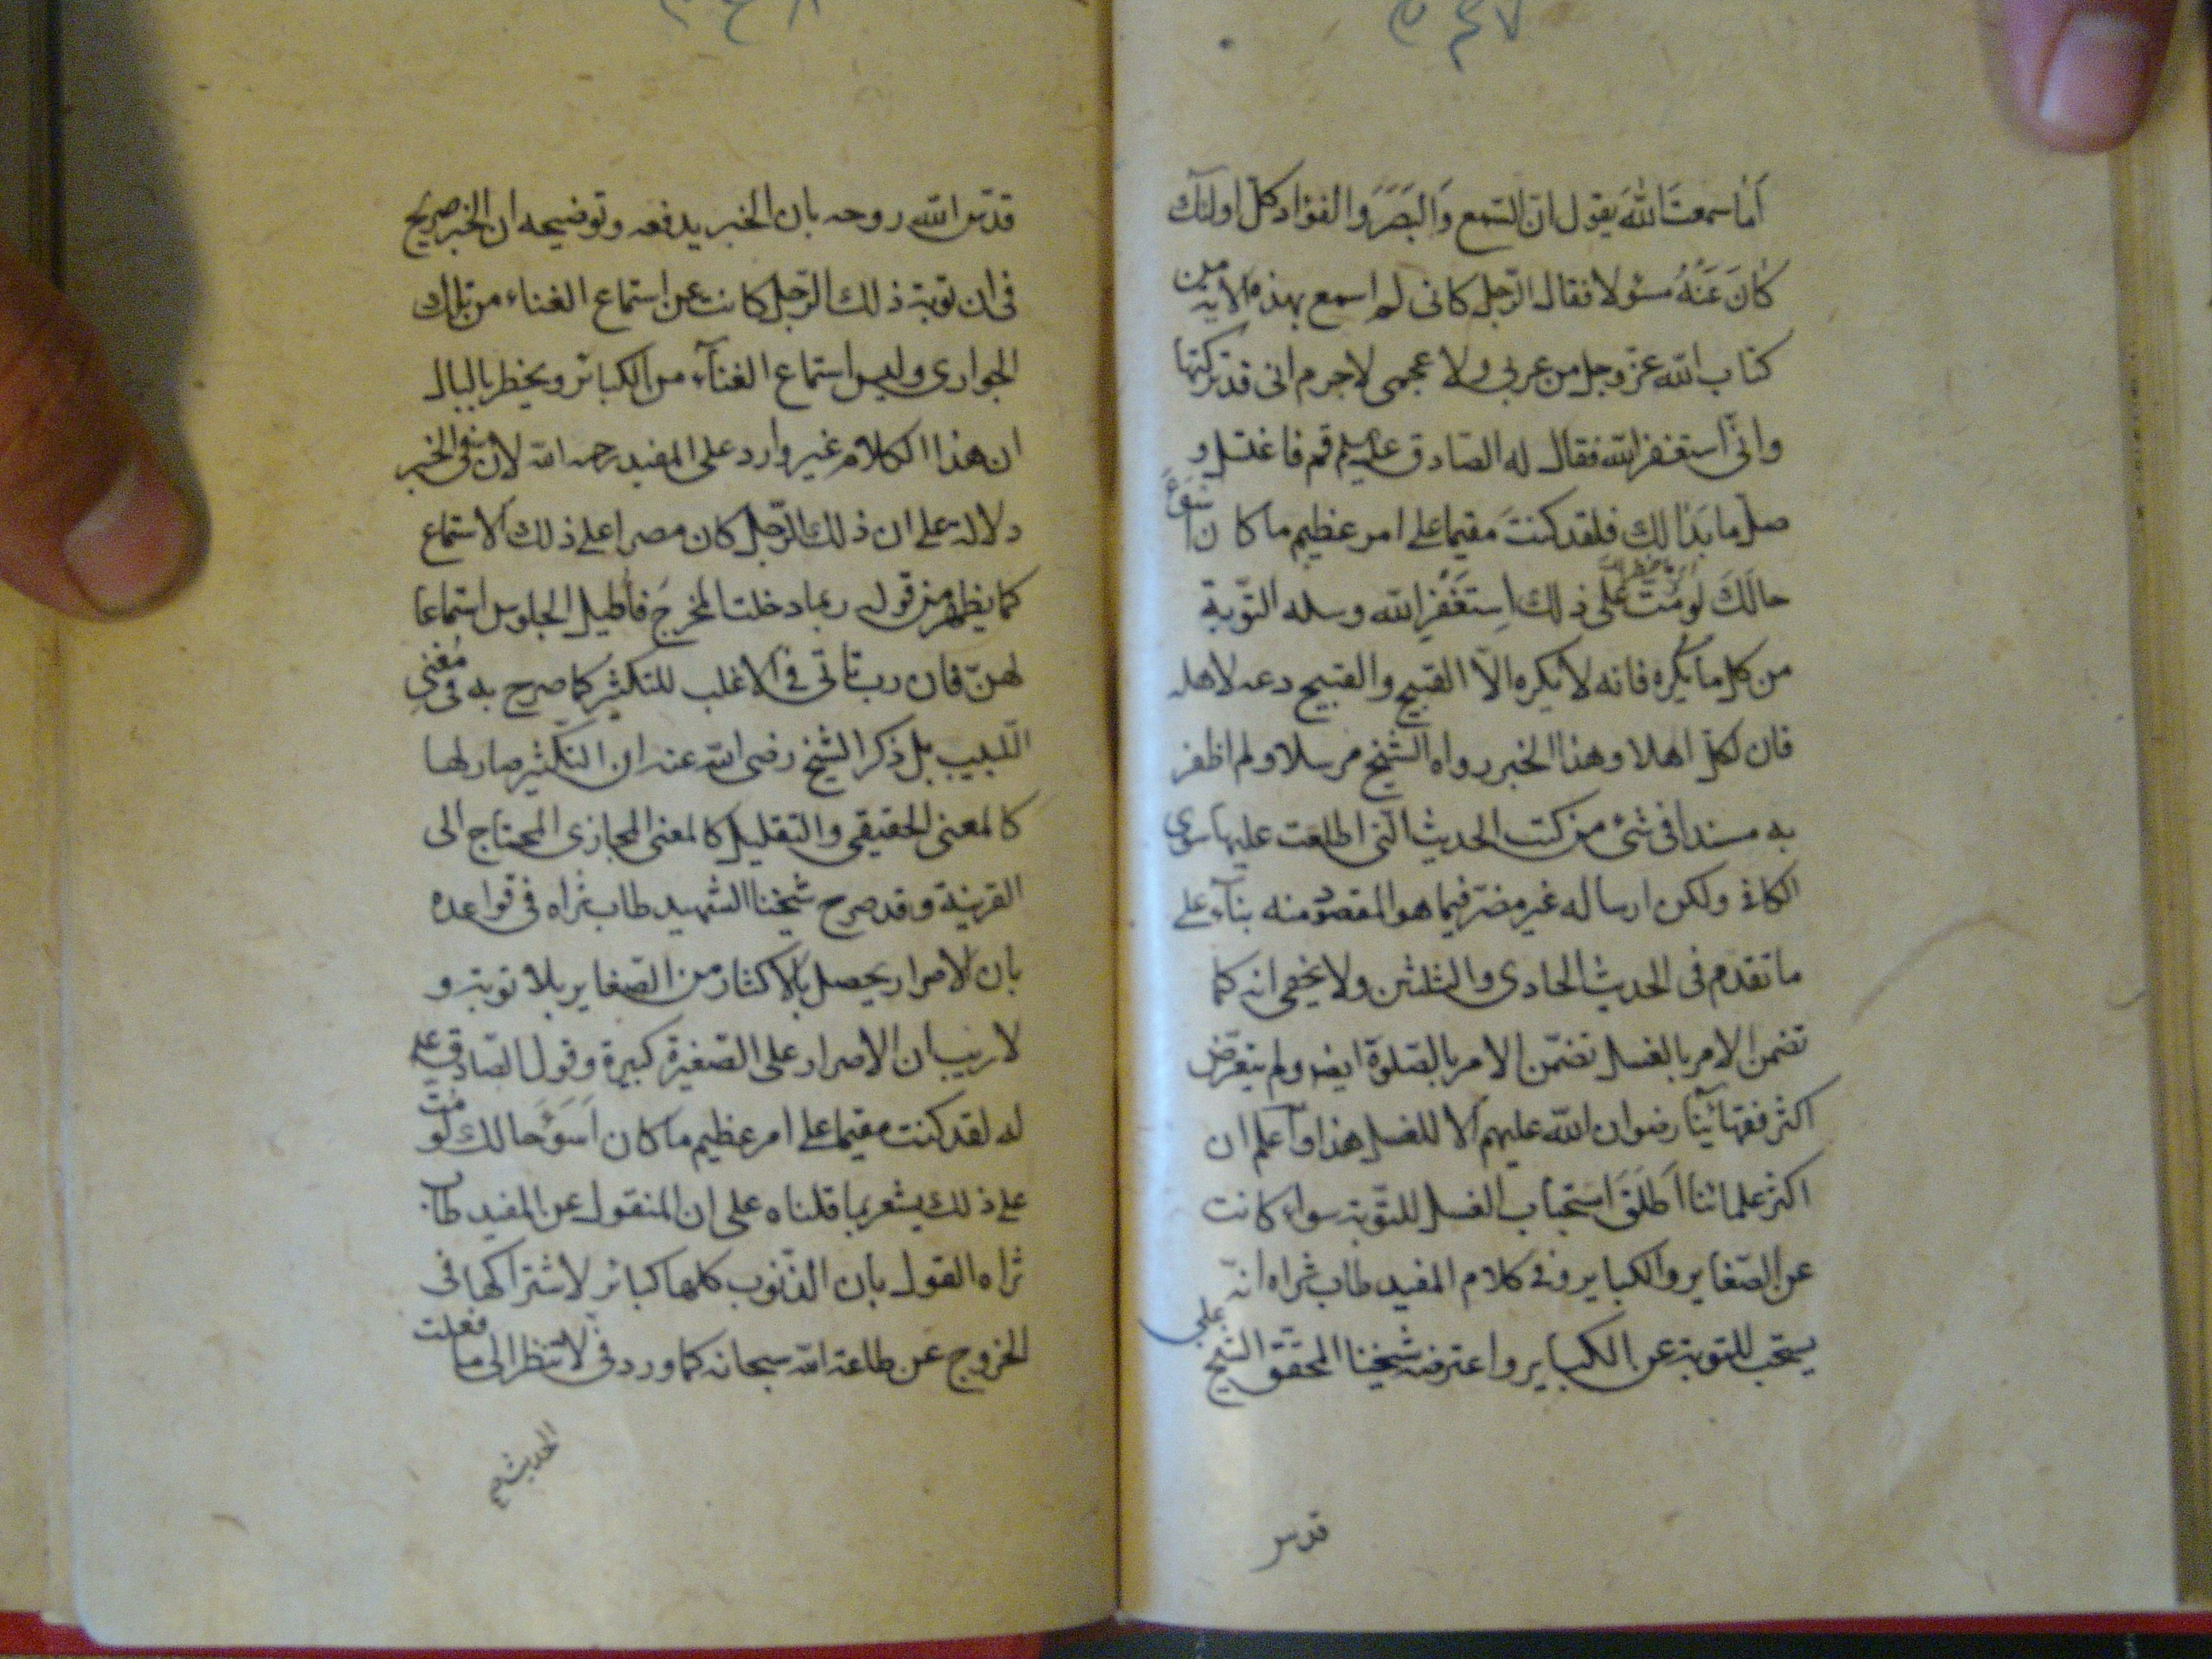 ۲۴۷
أما سمعت الله يقول ان السّمع وَالبَصَرَ والفؤاد كلّ اولئك
كانَ عَنْهُ مسئولا فقال الرّجل كانى لم اسمع بهذه الآية من
كتاب الله عزّوجل من عربي ولا عجمى لاجرم انى قد تركتها
وانّى استغفر الله فقال له الصّادق عليه السلم قم فاغتسل و
صلّ ما بَدٰا لك فلقد كنتَ مقيما على امر عظيم ما كان اسوَءَ
حالَكَ لو مُتَّ على ذلك اِستَغْفِرِ الله وسله التّوبة
من كل ما يكره فانه لا يكره الّا القبيح والقبيح دعه لاهله
فان لكلّ اهلا وهذا الخبر رواه الشّيخ مرسلا ولم اظفر
به مسندا فى شئ من كتب الحديث الّتى اطلعت عليها سوى
الكافى ولكن ارساله غير مضرّ فيما هو المقصود منه بنآء على
ما تقدم فى الحديث الحادى والثلثين ولا يخفى انه كما
تضمن الامر بالغسل تضمّن الامر بالصّلوة ايضا ولم يتعرّض
اكثر فقهائنا رضوان الله عليهم الا للغسل هذا واعلم ان
اكثر علمائنا اَطلَقَ استحباب الغسل للتّوبة سواء كانت
عن الصّغاير والكباير وفى كلام المفيد طاب ثراه انّه
يستحب للتوبة عن الكباير واعترضه شيخنا المحقّق الشيخ على
قدس
۲۴۸
قدّس الله روحه بان الخبر يدفعه وتوضيحه ان الخبر صريح
فى ان توبة ذلك الرّجل كانت عن استماع الغناء من تلك
الجوارى وليس استماع الغنآء من الكبائر ويخطر بالبال
ان هذا الكلام غير وارد على المفيد رحمه الله لان فى الخبر
دلالة على ان ذلك الرّجل كان مصرا على ذلك الاستماع
كما يظهر من قوله ربما دخلت المخرجَ فاُطيل الجلوس استماعا
لهنّ فان رب تاتى فى الاغلب للتكثير كما صرح به فى مُغنى
اللّبيب بل ذكر الشّيخ رضى الله عنه ان التكثير صار لها
كالمعنى الحقيقى والتقليل كالمعنى المجازى المحتاج الى
القرينة وقد صرح شيخنا الشهيد طاب ثراه فى قواعده
بان الاصرار يحصل بالاكثار من الصّغاير بلا توبة و
لا ريب ان الاصرار على الصّغيرة كبيرة وقول الصّادق عليه
له لقد كنت مقيما على امر عظيم ما كان اَسوَءَ حالك لو مُتَّ
على ذلك يشعر بما قلناه على ان المنقول عن المفيد طاب
ثراه القول بان الذّنوب كلها كبائر لاشتراكها فى
الخروج عن طاعة الله سبحانه كما ورد فى لا تنظر الى ما فعلت
الحديث